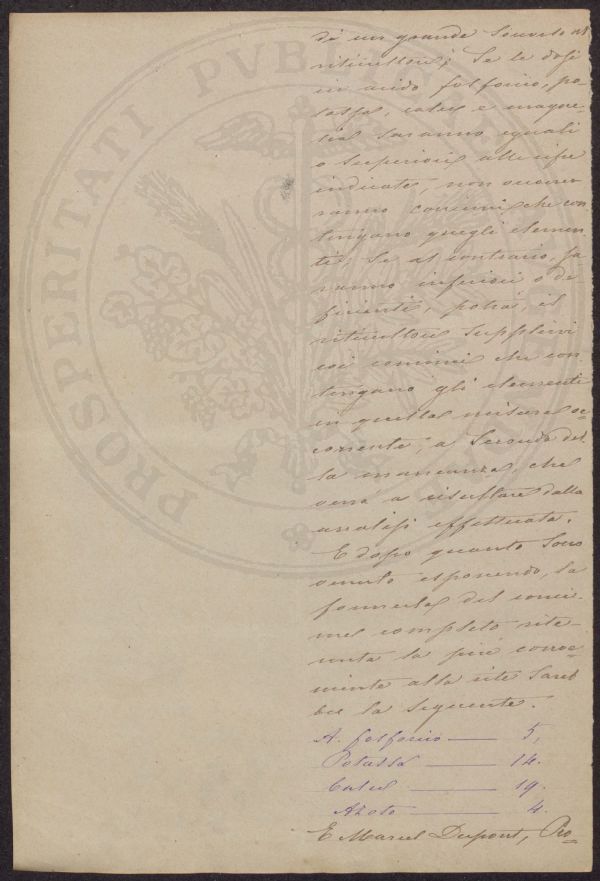 di un grande concetto al
viticultore; Se le dosi
in acido fosforico, po-
tassa, calce e magne-
sia saranno eguali
o superiori alle cifre
indicate, non occorre-
ranno concimi, che con
tengano quegli elemen-
ti; Se al contrario, sa
ranno inferiori o de-
ficienti, potrai, il
viticultore supplirvi
coi concimi che con
tengano gli elementi
in quella misura oc-
corrente, a secondo del
la mancanza, che
verrà a risultare dalla
analisi effettuata.
E dopo quanto sono
venuto esponendo, la
formula del conci-
me completo rite-
nuta la più conve-
niente alla vite sareb
be la seguente.
A. fosforico — 5,
Potassa — 14.
Calce — 19.
Azoto — 4.
E Marcel Dupont, Pro-
PROSPERITATI PVBLICAE